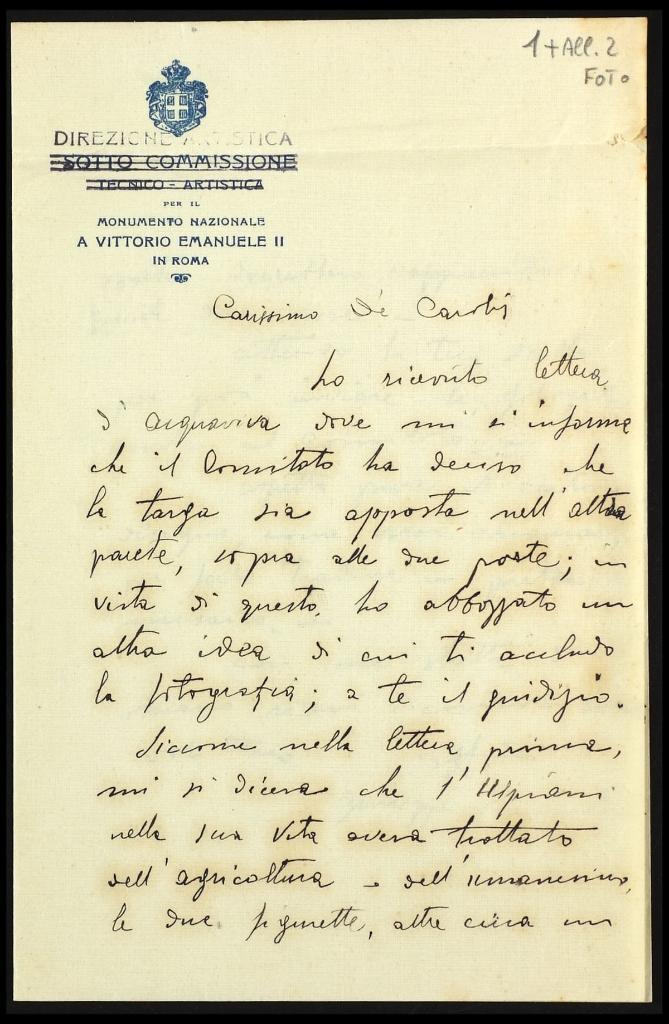 1 + All. 2
FOTO
DIREZIONE ARTISTICA
SOTTO COMMISSIONE
TECNICO - ARTISTICA
PER IL
MONUMENTO NAZIONALE
A VITTORIO EMANUELE II
IN ROMA
Carissimo De Carolis
ho ricevuto lettera
d'Acquaviva dove mi si informa
che il Comitato ha deciso che
la targa sia apposta nell'altra
parete, sopra alle due porte; in
vista di questo, ho abbozzato un
altra idea di cui ti accludo
la fotografia; a te il giudizio.
Siccome nella lettera prima,
mi si diceva che l'Ulpiani
nella sua vita aveva trattato
dell'agricoltura e dell'umanesimo,
le due figurette, alte circa un